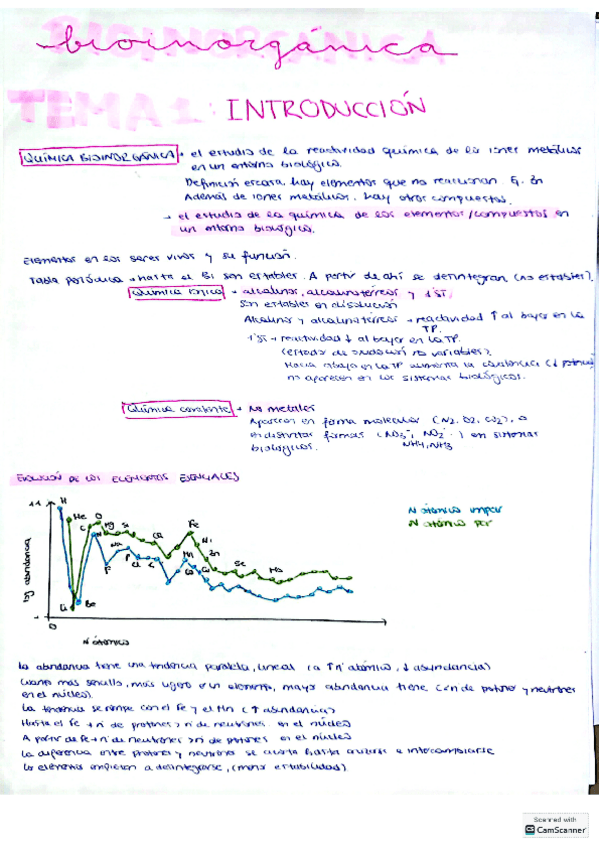 bioinorgánica
TEMA 1: INTRODUCCIÓN
QUÍMICA BIOINORGÁNICA → el estudio de la reactividad química de los iones metálicos
en un entorno biológico.
Definición escasa, hay elementos que no reaccionan. Ej. Zn
Además de iones metálicos, hay otros compuestos.
→ el estudio de la química de los elementos/compuestos en
un entorno biológico.
Elementos en los seres vivos y su función.
Tabla periódica → hasta el Bi son estables. A partir de ahí se desintegran (no estables).
Química iónica → alcalinos, alcalinotérreos y 1ªST,
Son estables en disolución
Alcalinos y alcalinotérreos → reactividad ↑ al bajar en la
TP.
1ªST → reactividad ↓ al bajar en la TP.
(estado de oxidación variables).
Hacia abajo en la TP aumenta la covalencia (↓
no aparecen en los sistemas biológicos.
Química covalente → No metales
Aparecen en forma molecular (N2, O2, CO2), o
en distintas formas (NO3⁻, NO2⁻) en sistemas
biológicos. NH4, NH3
EVOLUCIÓN DE LOS ELEMENTOS ESENCIALES
11 H
He C O N Mg Si Fe
Na Ca Ni
F P Cl K Mn Zn
Co Cu Se Mo
Li Be
log abundancia
0
N atómico
N atómico impar
N atómico par
La abundancia tiene una tendencia paralela, lineal (a ↑N atómico, ↓ abundancia)
Cuanto más sencillo, más ligero es un elemento, mayor abundancia tiene (en nº de protones y neutrones
en el núcleo).
La tendencia se rompe con el Fe y el Mn (↑ abundancia)
Hasta el Fe → nº de protones > nº de neutrones en el núcleo
A partir de Fe → nº de neutrones > nº de protones en el núcleo
La diferencia entre protones y neutrones se acorta hasta e intercambiarse
Los elementos empiezan a desintegrarse, (menor estabilidad)
Scanned with
CS CamScanner